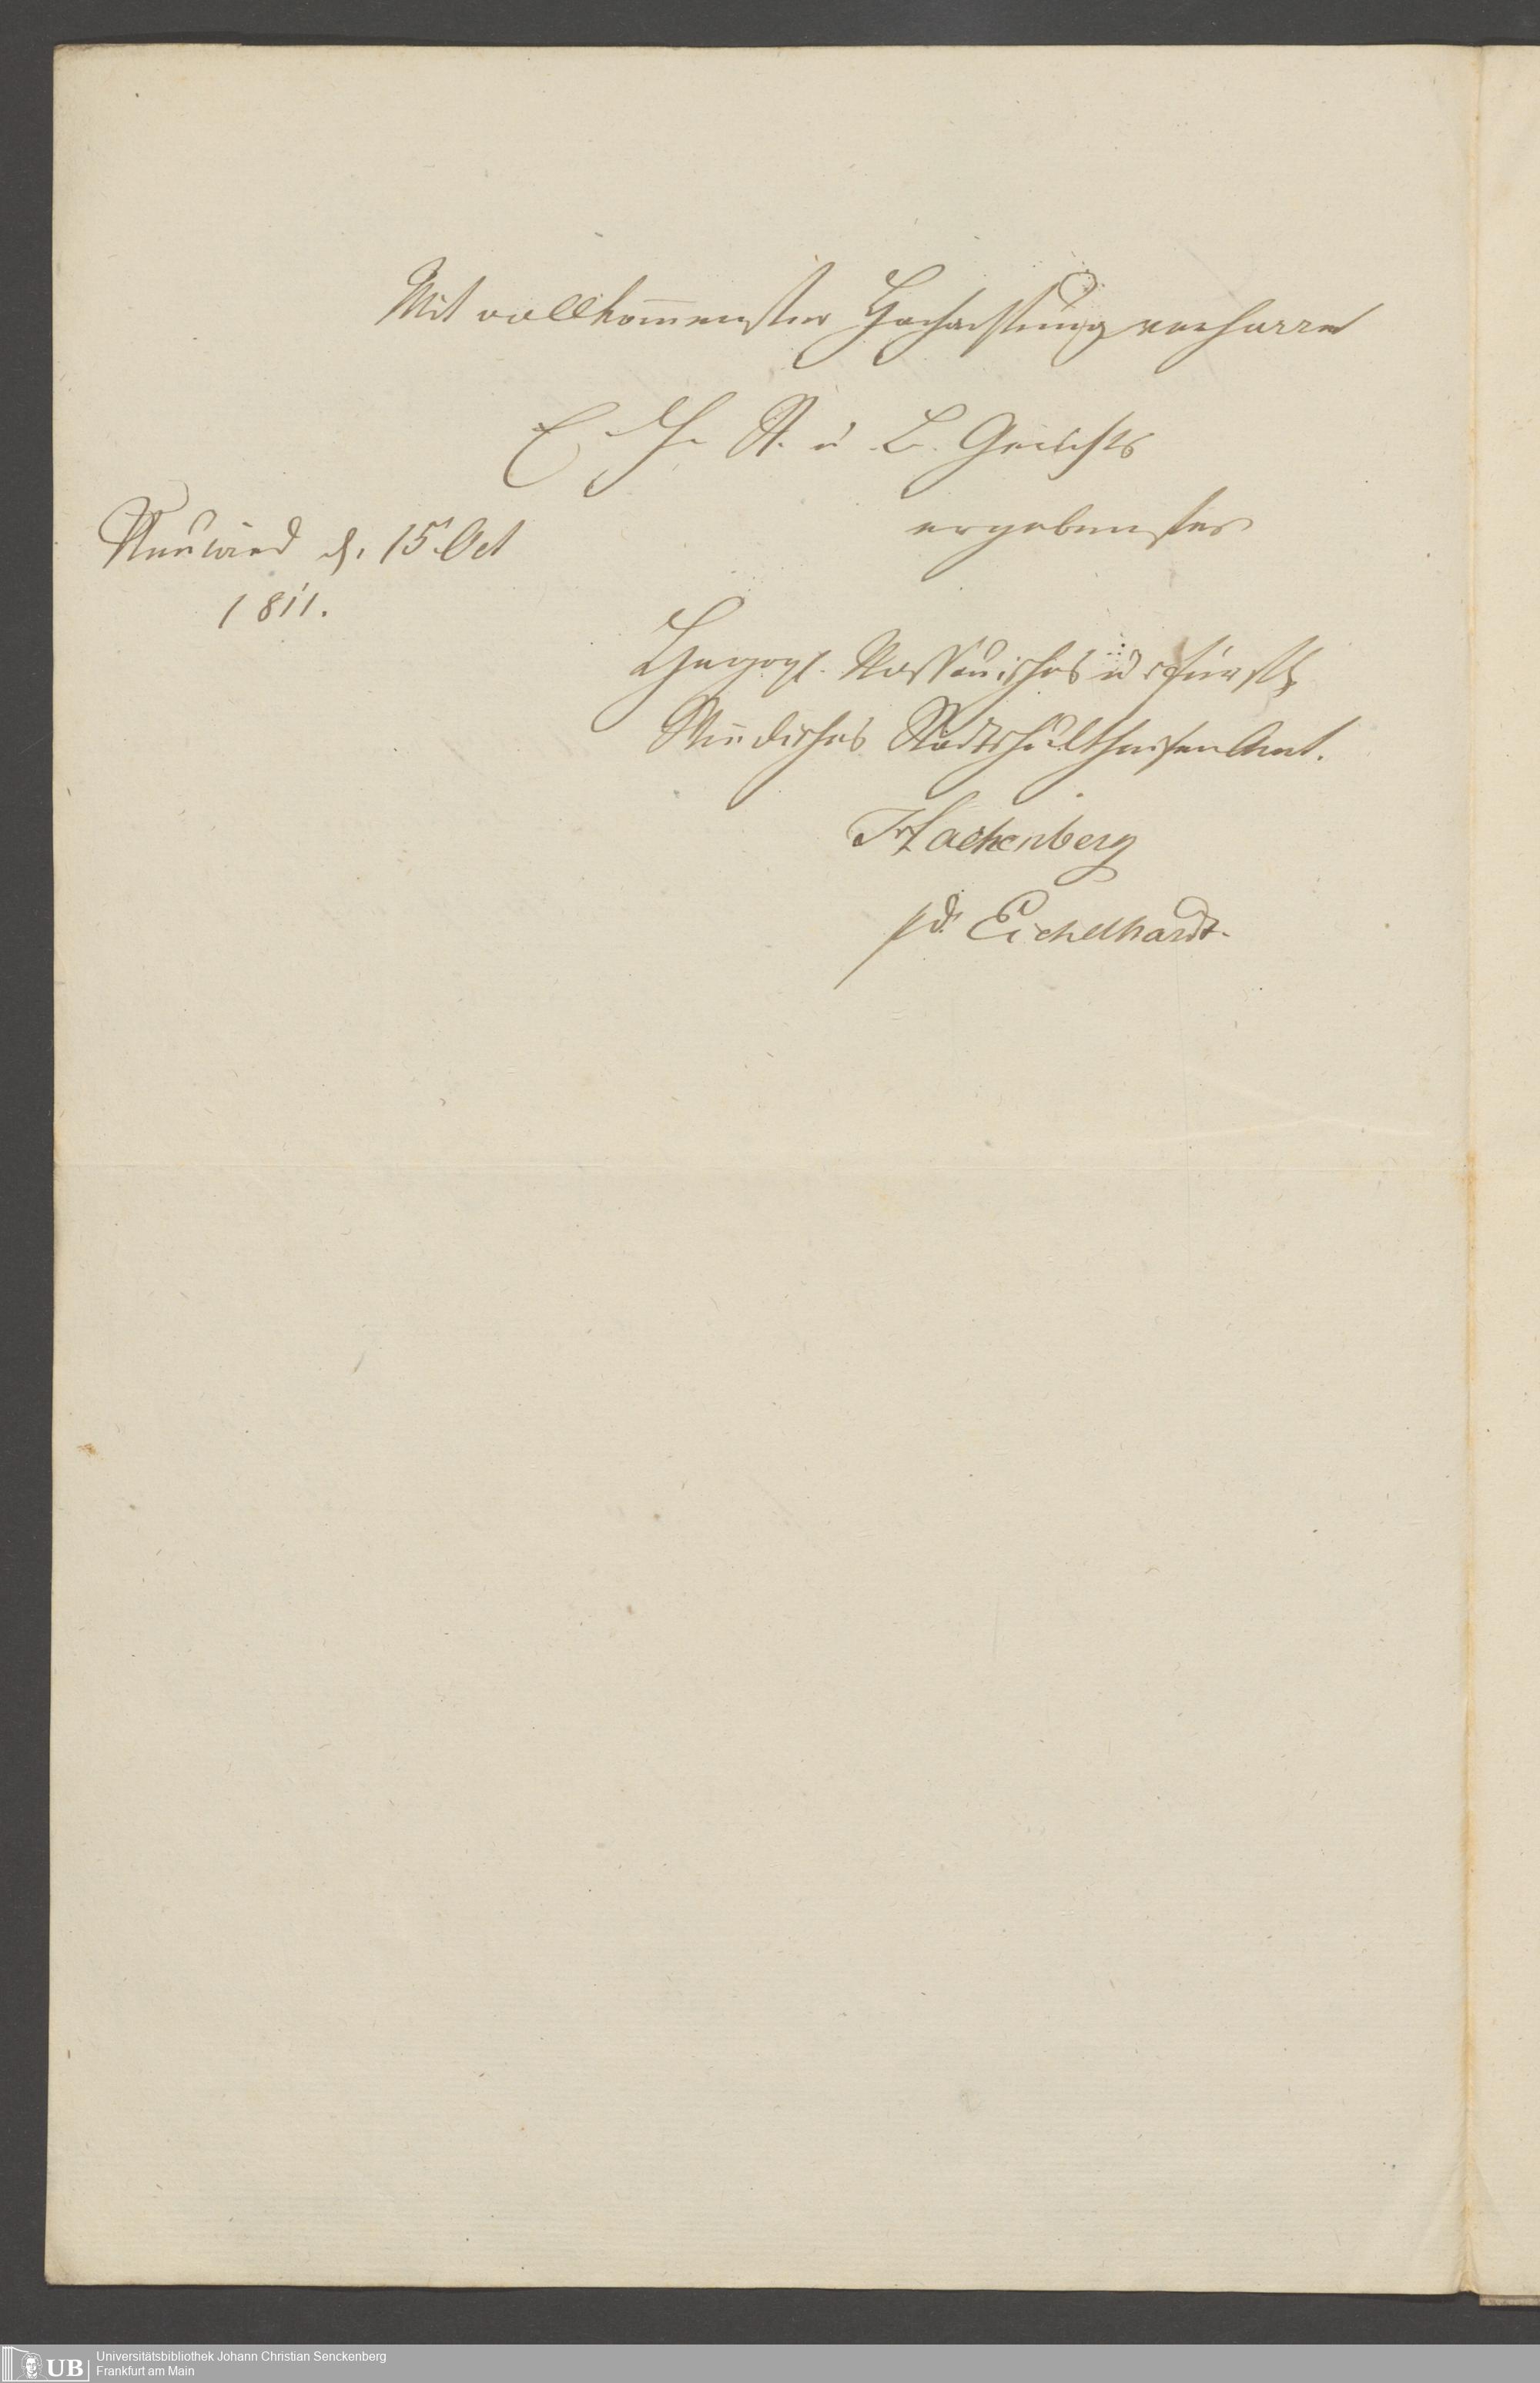 Mit vollkom̅enster Hochachtung verharre
E. H. St. u L. Gerichts
ergebenstes
Neuwied d. 15 Oct
1811.
Herzogl. Nassauisches u fürstl
Wiedisches Stadtschultheisen Amt.
Hachenberg
pd. Eichelhardt.
UB
Universitätsbibliothek Johann Christian Senckenberg
Frankfurt am Main